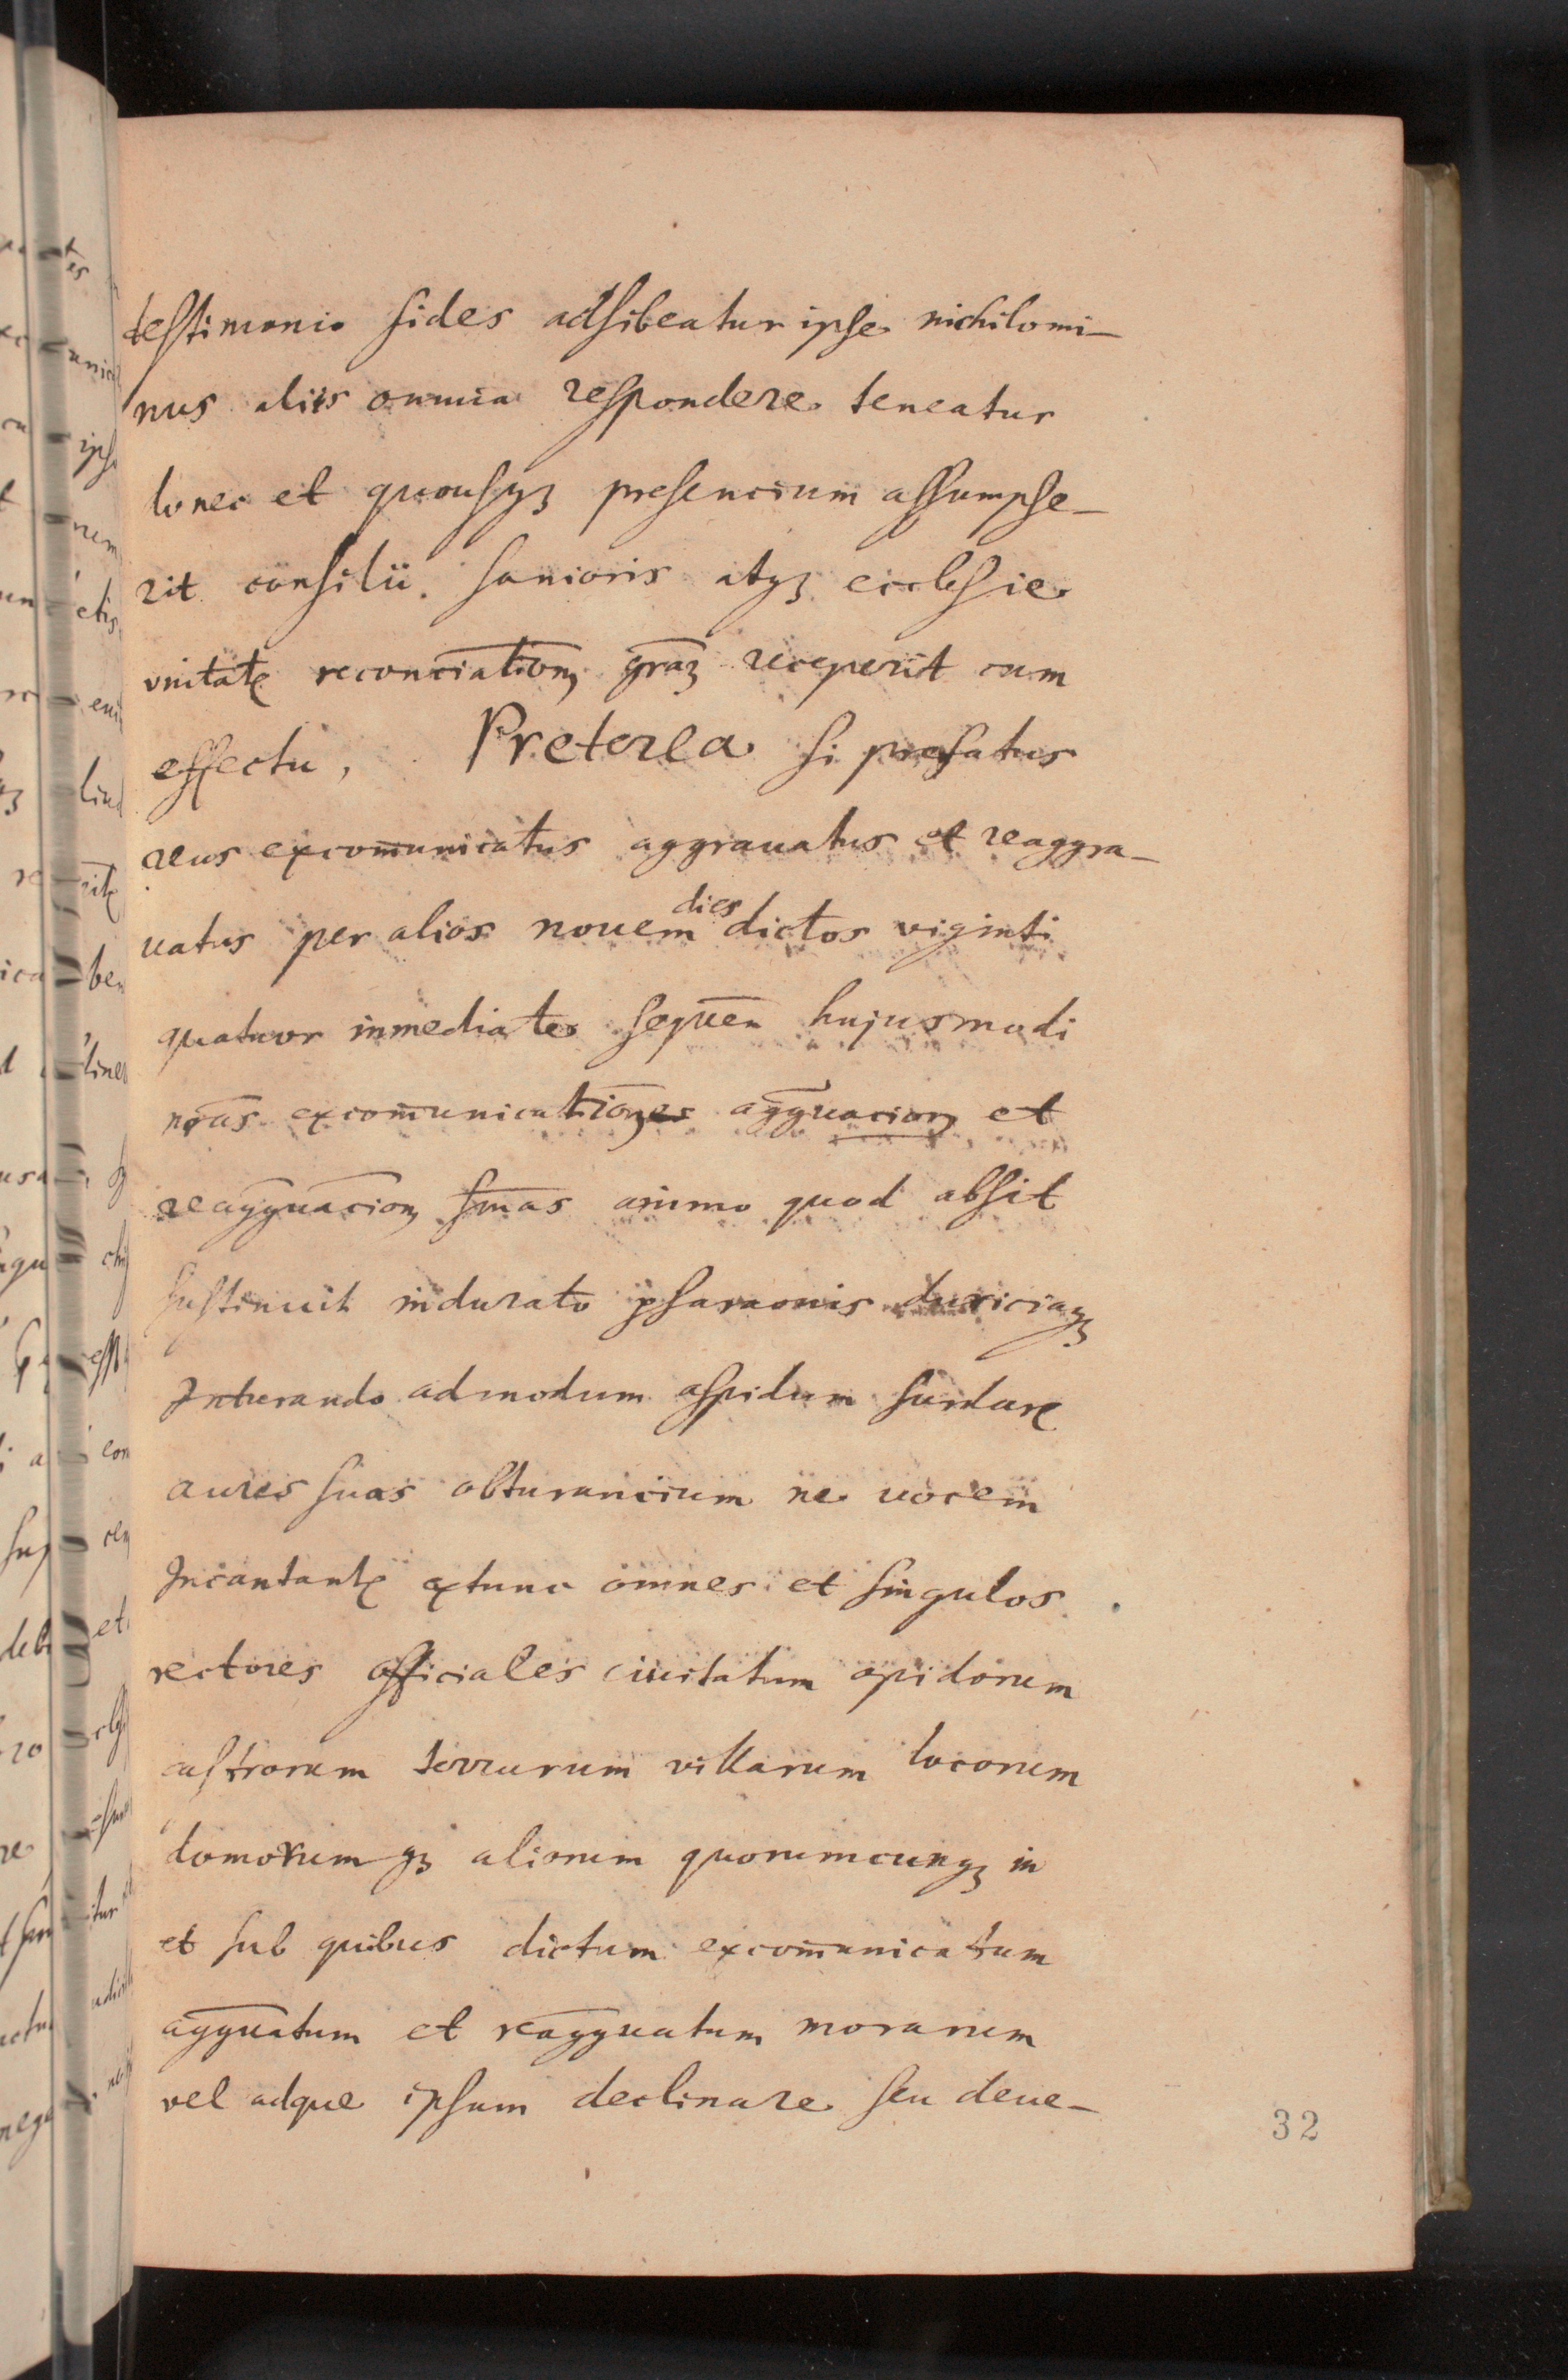 testimonio fides adhibeatur ipse nichilomi-
nus aliis omnia respondere teneatur
donec et quousqꝫ presencium assumpse-
rit consilii sanioris atqꝫ ecclesie
vnitatꝭ reconciatioꝫ gr̄aꝫ receperit cum
effectu, Preterea si prefatus
reus excom̄unicatus aggrauatus et reaggra-
uatus per alios nouem dies dictos viginti
quatuor inmediate sequen̄ hujusmodi
nr̄as excom̄unicationes agguacioꝫ et
reagguacioꝫ sn̄ias animo quod absit
sustinuit indurato pharaonis duriciaqꝫ
Inturando admodum aspidum surdarꝭ
aures suas obturancium ne uocem
Incantantꝭ extunc omnes et singulos
rectores officiales ciuitatum opidorum
castrorum terrarum villarum locorum
domorumqꝫ aliorum quorumcunqꝫ in
et sub quibus dictum excom̄unicatum
agguatum et reagguatum morarum
vel adque ipsum declinare seu deue-
32